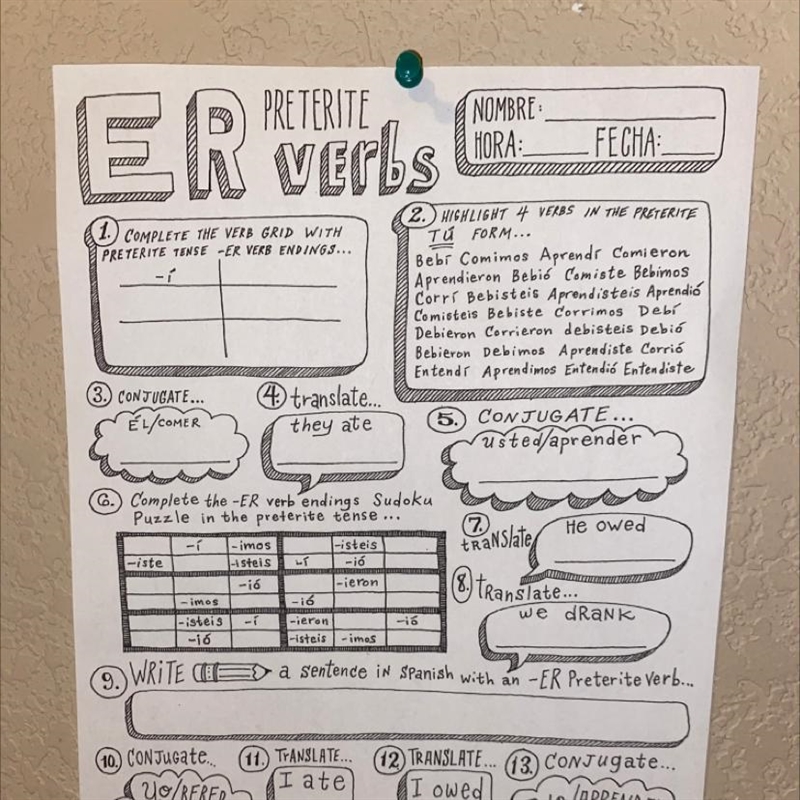 ER PRETERITE verbs
NOMBRE:
HORA: FECHA:
1. COMPLETE THE VERB GRID WITH
PRETERITE TENSE -ER VERB ENDINGS...
-í
2. HIGHLIGHT 4 VERBS IN THE PRETERITE
TÚ FORM...
Bebí Comimos Aprendí Comieron
Aprendieron Bebió Comiste Bebimos
Corrí Bebisteis Aprendisteis Aprendió
Comisteis Bebiste Corrimos Debí
Debieron Corrieron debisteis Debió
Bebieron Debimos Aprendiste Corrió
Entendí Aprendimos Entendió Entendiste
3. CONJUGATE...
ÉL/COMER
4. translate...
they ate
5. CONJUGATE...
usted/aprender
6. Complete the -ER verb endings Sudoku
Puzzle in the preterite tense...
-í -imos -isteis
-iste -isteis -í -ió
-ió -ieron
-imos -ió
-isteis -í -ieron -ió
-ió -isteis -imos
7. tRANSLATE
He owed
8. tRanslate...
we dRANK
9. WRITE a sentence iN Spanish with an -ER Preterite Verb...
10. CONJugate...
YO/BEBER
11. TrANSLATE...
I ate
12. TRANSLATE...
I owed
13. Conjugate...